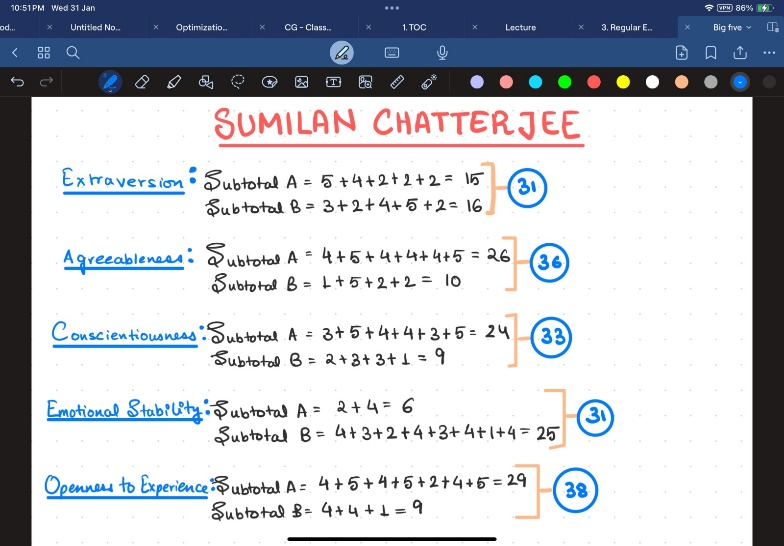 10:51 PM Wed 31 Jan
VPN 86%
od...
Untitled No...
Optimizatio...
CG - Class...
1. TOC
Lecture
3. Regular E...
Big five
SUMILAN CHATTERJEE
Extraversion: Subtotal A = 5+4+2+2+2 = 15
Subtotal B = 3+2+4+5+2 = 16
31
Agreeableness: Subtotal A = 4+5+4+4+4+5 = 26
Subtotal B = 1+5+2+2 = 10
36
Conscientiousness: Subtotal A = 3+5+4+4+3+5 = 24
Subtotal B = 2+3+3+1 = 9
33
Emotional Stability: Subtotal A = 2+4 = 6
Subtotal B = 4+3+2+4+3+4+1+4 = 25
31
Openness to Experience: Subtotal A = 4+5+4+5+2+4+5 = 29
Subtotal B = 4+4+1 = 9
38